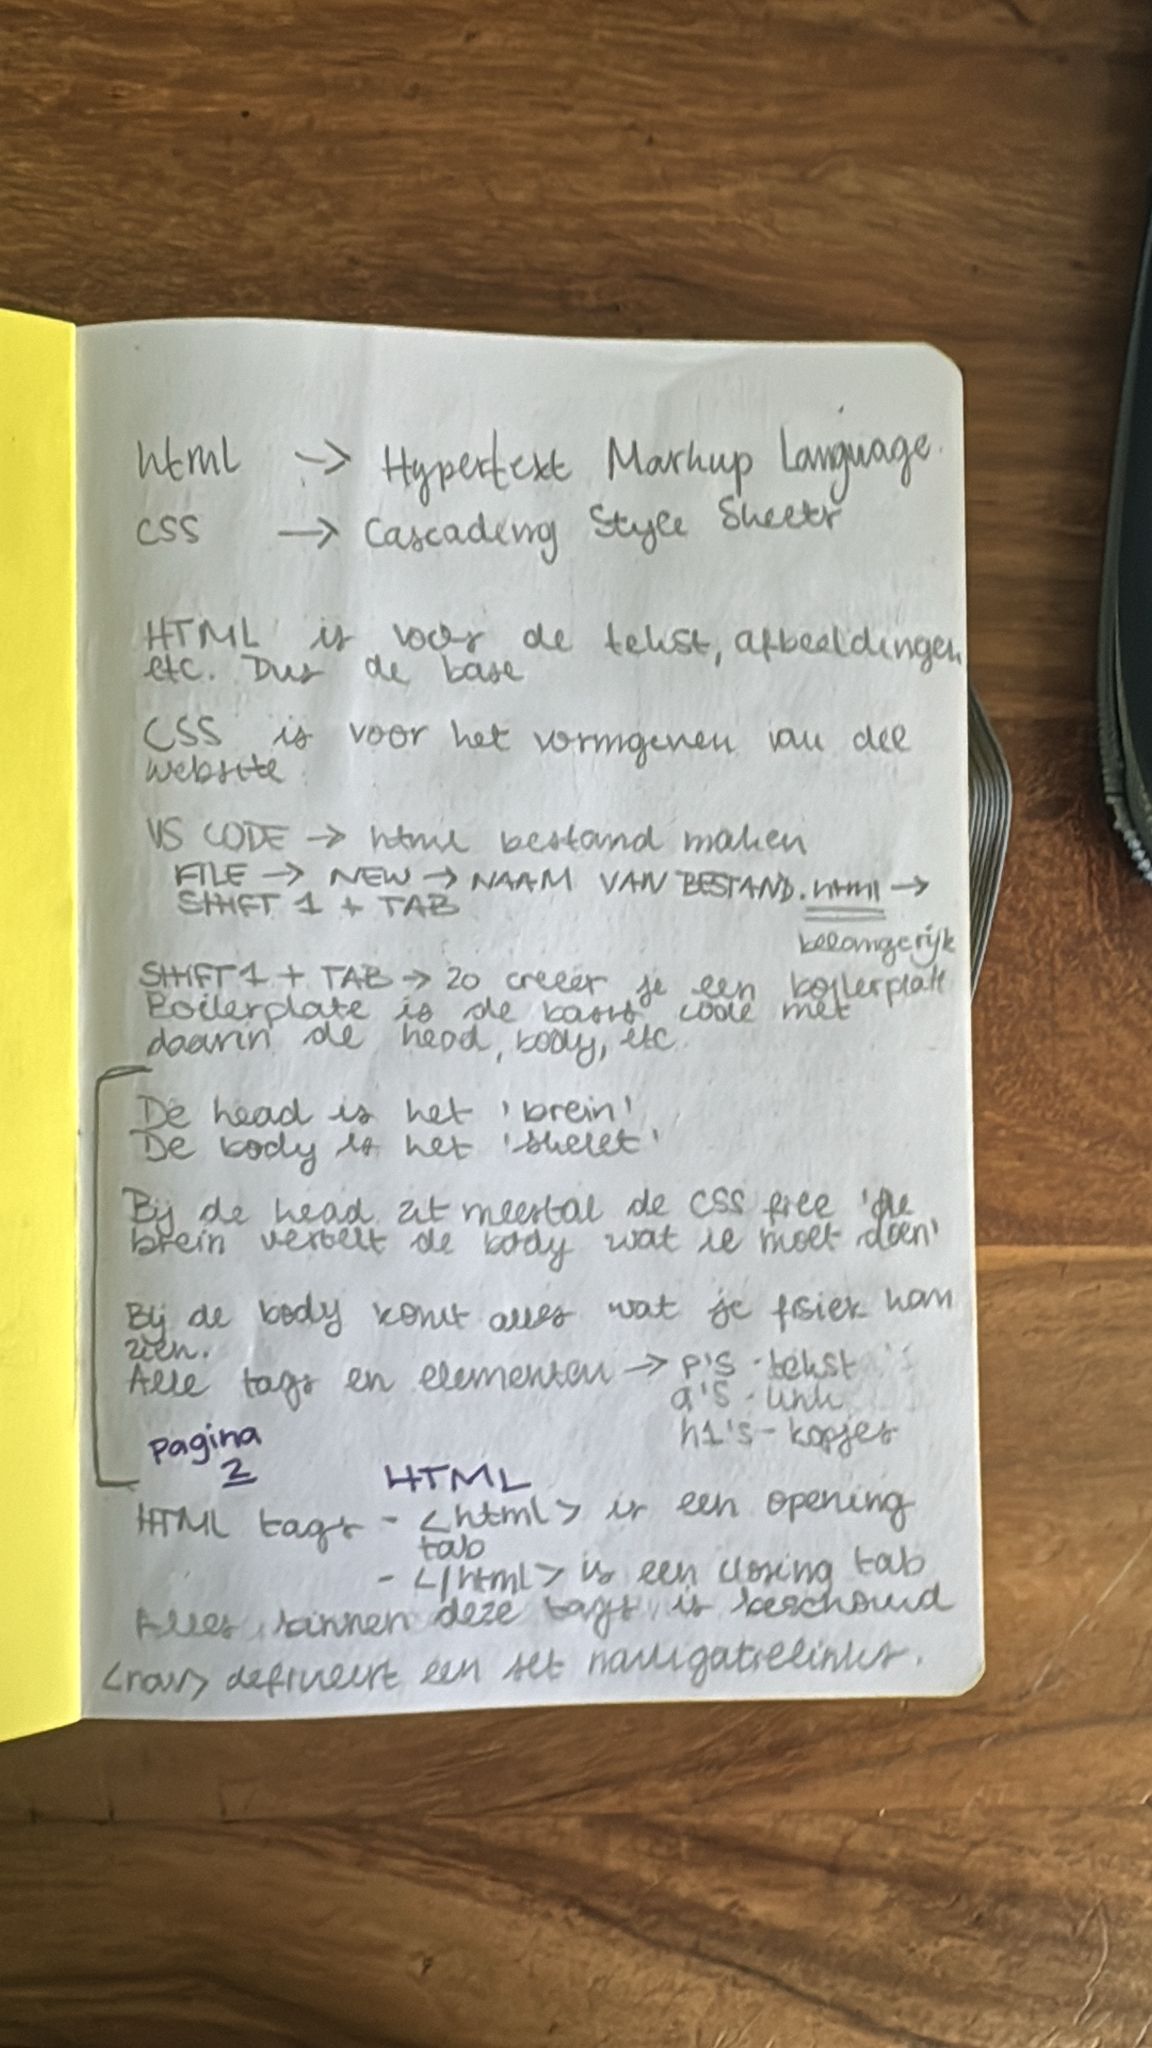 html -> Hypertext Markup Language.
CSS -> Cascading Style Sheets
HTML is voor de tekst, afbeeldingen
etc. Dus de base
CSS is voor het vormgeven van die
website
VS CODE -> html bestand maken
FILE -> NEW -> NAAM VAN BESTAND.html ->
SHIFT 1 + TAB
belangerijk
SHIFT 1 + TAB -> zo creëer je een boilerplate
Boilerplate is de basis code met
daarin de head, body, etc.
De head is het 'brein'
De body is het 'skelet'
Bij de head zit meestal de CSS 'die
brein vertelt de body wat ie moet doen'
Bij de body komt alles wat je fisiek kan
zien.
Alle tags en elementen -> p's - tekst
a's - link
h1's - kopjes
pagina
2
HTML
HTML tags - <html> is een opening
tab
- </html> is een closing tab
Alles binnen deze tags is beschouwd
<nav> definieert een set navigatielinks.